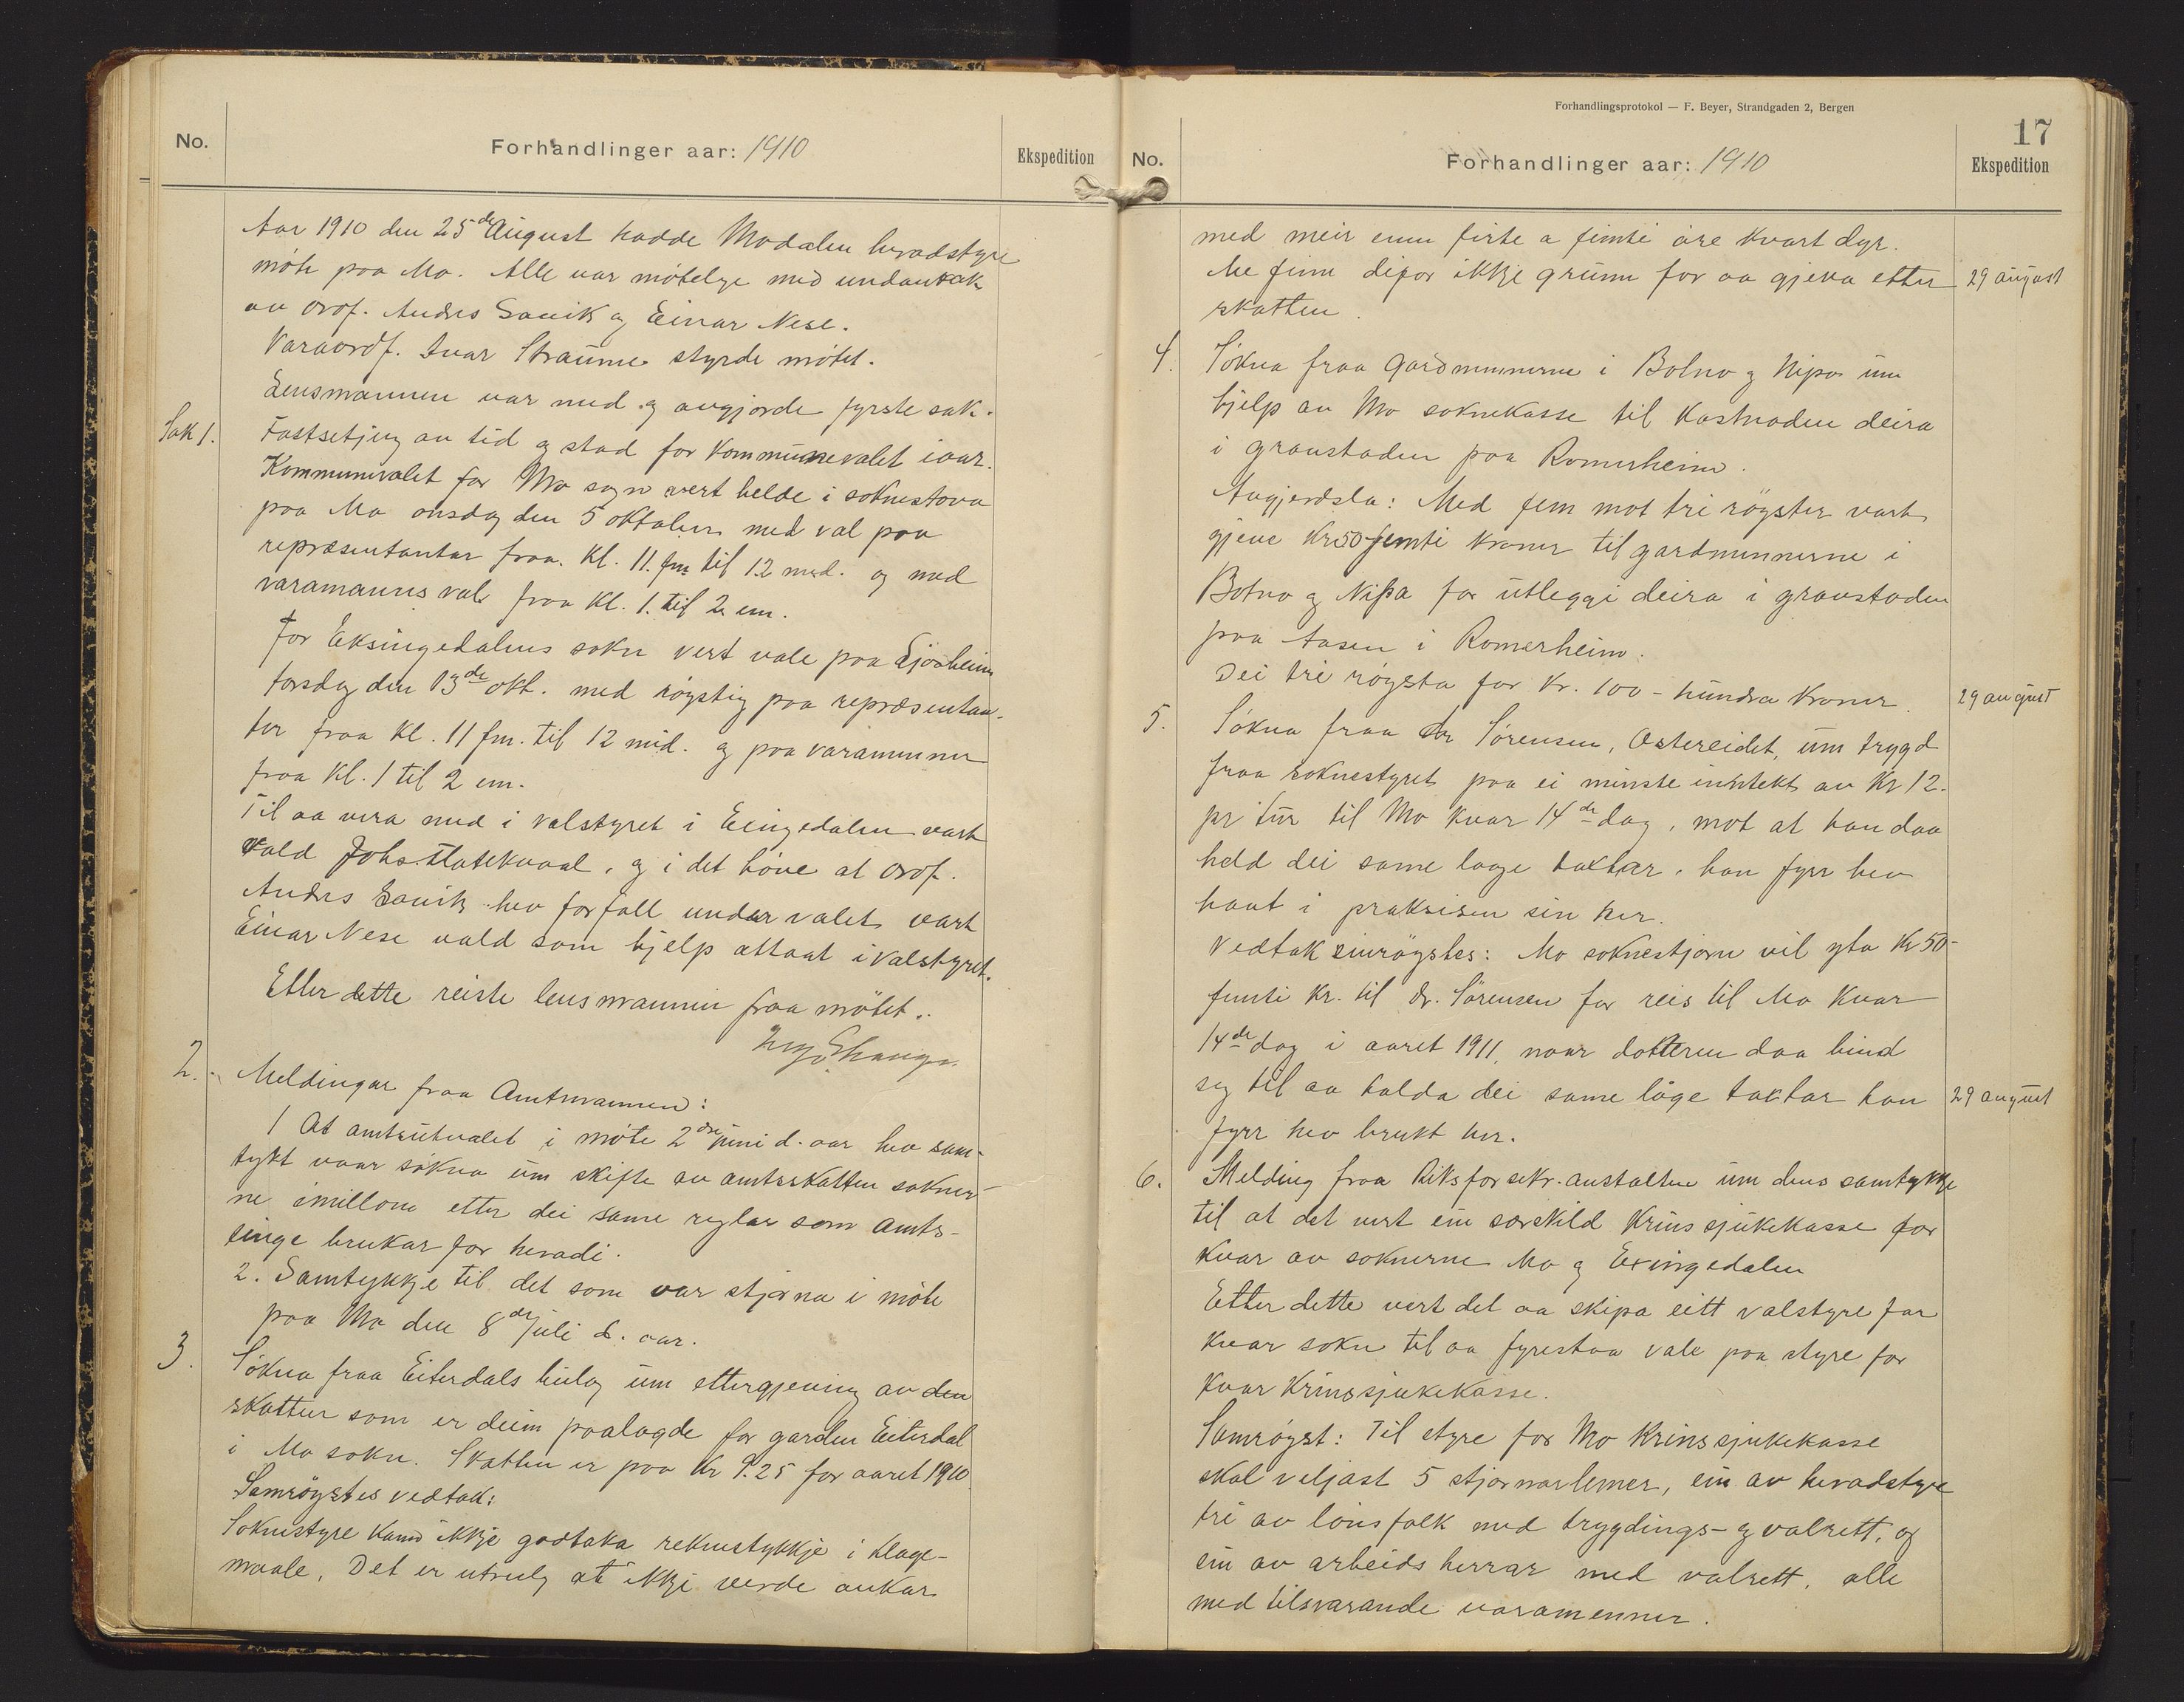 No.
Forhandlinger aar: 1910
Ekspedition
Aar 1910 den 25de August hadde Modalen heradstyre
møte paa Mo. Alle var møtelge med undantak
av ordf. Andrs Eavik og Einar Nese.
Varaordf. Ivar Straume styrde møtet.
Lensmannen var med og avgjorde fyrste sak.
Sak 1. Fastsetjing av tid og stad for kommunevalet iaar.
Kommunevalet for Mo sogn vert helde i soknestova
paa Mo onsdag den 5 oktober med val paa
repræsentantar fraa kl. 11. fm til 12 mid. og med
varamanns val fraa kl. 1. til 2 em.
For Eksingedalens sokn vert vale paa
torsdag den 13de okt. med røysting paa repræsentan-
ter fraa kl. 11 fm. til 12 mid. og paa varamenner
fraa kl. 1 til 2 em.
Til aa vera med i valstyret i Eksingedalen vart
vald Johs. Flatekvaal, og i det høve at ordf.
Andrs Eavik hev forfall under valet vart
Einar Nese vald som hjelp attaat i valstyret.
Etter dette reiste lensmannen fraa møtet.
2. Meldingar fraa Amtmannen:
1 At amtsutvalet i møte 2dre juni d. aar hev sam-
tykt vaar søkna um skifte av amtsskatten sokner-
ne imillom etter dei same reglar som amts-
tinge brukar for heradi.
2. Samtykkje til det som var stjorna i møte
paa Mo den 8de juli d. aar.
3. Søkna fraa Eiterdals beitelag um ettergjeving av den
skatten som er deim paalagde for garden Eiterdal
i Mo sokn. Skatten er paa Kr 9.25 for aaret 1910
Samrøystes vedtak:
Soknestyre kann ikkje godtaka reknestykkje i klage-
maale. Det er utruleg at ikkje verde aukar
Forhandlingsprotokol — F. Beyer, Strandgaden 2, Bergen
17
No.
Forhandlinger aar: 1910
Ekspedition
med meir enn firte a fimti øre kvart dyr.
Me finn difor ikkje grunn for aa gjeva etter 29 august
skatten.
4. Søkna fraa gardmennerne i Botno og Nipa um
hjelp av Mo soknekasse til kostnaden deira
i gravstaden paa Romerheim.
Avgjerdsla: Med fem mot tri røyster vart
gjeve Kr 50 femti kroner til gardmennerne i
Botno og Nipa for utleggi deira i gravstaden
paa Aasen i Romerheim.
Dei tri røysta for Kr. 100 - hundra kroner. 29 august
5. Søkna fraa dr Sørensen, Ostereidet, um trygd
fraa soknestyret paa ei minste inntekt av Kr 12.
pr tur til Mo kvar 14de dag, mot at han daa
held dei same laage takstar, han fyrr hev
havt i praksisen sin her.
Vedtak einrøystes: Mo soknestjorn vil yta Kr 50-
femti Kr. til dr. Sørensen for reis til Mo kvar
14de dag i aaret 1911, naar dokteren daa bind
seg til aa halda dei same låge takstar han 29 august
fyrr hev brukt her.
6. Melding fraa Riksforsekr. anstalten um dens samtykkje
til at det vert ein sorskild krins sjukekasse for
kvar av soknerne Mo og Exingedalen
Etter dette vert det aa skipa eitt valstyre for
kvar sokn til aa fyrestaa vale paa styre for
kvar krinssjukekasse.
Samrøyst: Til styre for Mo krinssjukekasse
skal veljast 5 stjornarlemer, ein av heradstyre
tri av lönsfolk med trygdings- og valrett, og
ein av arbeids herrar med valrett, alle
med tilsvarande varamenner.